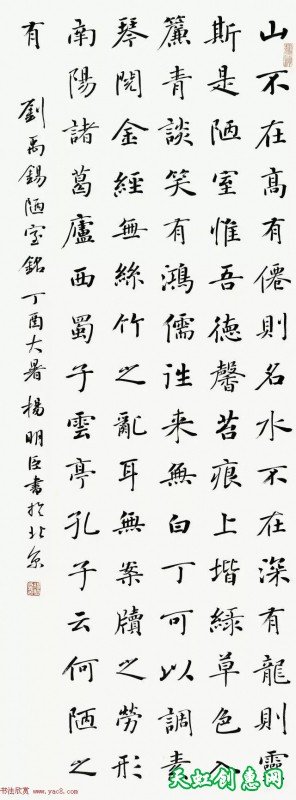 山不在高有僊則名水不在深有龍則靈
斯是陋室惟吾德馨苔痕上堦綠草色入
簾青談笑有鴻儒往来無白丁可以調素
琴閱金經無絲竹之亂耳無案牘之勞形
南陽諸葛廬西蜀子雲亭孔子云何陋之
有
劉禹錫陋室銘 丁酉大暑楊明臣書於北京
书法欣赏 www.yac8.com
天虹创意网